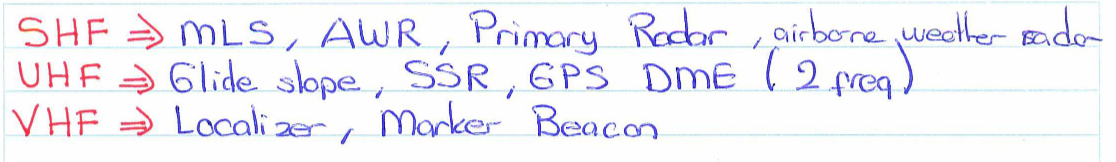 SHF ⇒ MLS, AWR, Primary Radar, airborne weather radar
UHF ⇒ Glide slope, SSR, GPS DME (2 freq)
VHF ⇒ Localizer, Marker Beacon